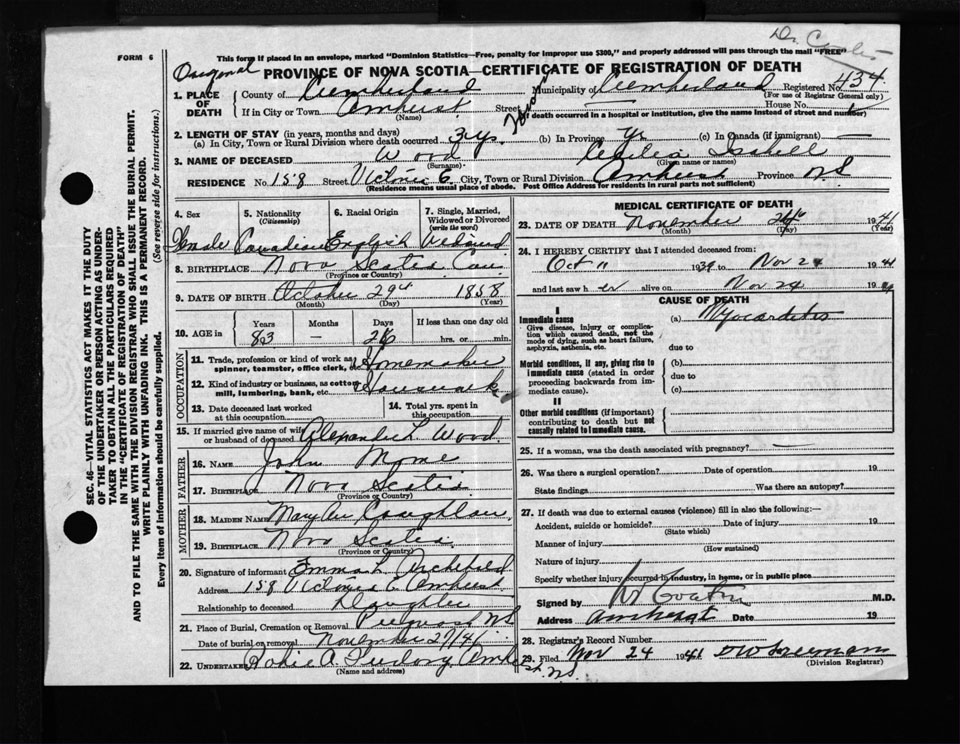 FORM 6
This form if placed in an envelope, marked "Dominion Statistics—Free, penalty for improper use $300," and properly addressed will pass through the mail "FREE"
Original PROVINCE OF NOVA SCOTIA—CERTIFICATE OF REGISTRATION OF DEATH
1. PLACE OF DEATH
County of Cumberland Municipality of Cumberland Registered No. 434
(For use of Registrar General only)
If in City or Town Amherst Street House No.
(Name) (If death occurred in a hospital or institution, give the name instead of street and number)
2. LENGTH OF STAY (in years, months and days)
(a) In City, Town or Rural Division where death occurred 3 ys. (b) In Province (c) In Canada (if immigrant) —
3. NAME OF DECEASED Wood Cecilia Isabell
(Surname) (Given name or names)
RESIDENCE No. 158 Street Victoria E. City, Town or Rural Division Amherst Province N.S.
(Residence means usual place of abode. Post Office Address for residents in rural parts not sufficient)
4. Sex 5. Nationality (Citizenship) 6. Racial Origin 7. Single, Married, Widowed or Divorced (write the word)
Female Canadian English Widowed
8. BIRTHPLACE Nova Scotia Can
(Province or Country)
9. DATE OF BIRTH October 29th 1858
(Month) (Day) (Year)
10. AGE in Years Months Days If less than one day old
83 — 26 hrs. or min.
OCCUPATION
11. Trade, profession or kind of work as spinner, teamster, office clerk, etc. Homemaker
12. Kind of industry or business, as cotton mill, lumbering, bank, etc. Housework
13. Date deceased last worked at this occupation
14. Total yrs. spent in this occupation
15. If married give name of wife or husband of deceased Alexander L. Wood
FATHER
16. NAME John
17. BIRTHPLACE Nova Scotia
(Province or Country)
MOTHER
18. MAIDEN NAME Mary Ann Coughlan
19. BIRTHPLACE Nova Scotia
(Province or Country)
20. Signature of informant Emma L. Archibald
Address 158 Victoria E. Amherst
Relationship to deceased Daughter
21. Place of Burial, Cremation or Removal Pugwash N.S.
Date of burial or removal November 27/41
22. UNDERTAKER A. Furlong Amherst, N.S.
(Name and address)
MEDICAL CERTIFICATE OF DEATH
23. DATE OF DEATH November 24th 1941
(Month) (Day) (Year)
24. I HEREBY CERTIFY that I attended deceased from:
Oct 11 1939 to Nov 24 1941
and last saw h er alive on Nov 24 19
CAUSE OF DEATH
I
Immediate cause (a) Myocarditis
Give disease, injury or complication which caused death, not the mode of dying, such as heart failure, asphyxia, asthenia, etc.
due to
Morbid conditions, if any, giving rise to immediate cause (stated in order proceeding backwards from immediate cause).
(b)
due to
(c)
II
Other morbid conditions (if important) contributing to death but not causally related to immediate cause.
25. If a woman, was the death associated with pregnancy? —
26. Was there a surgical operation? Date of operation 19
State findings Was there an autopsy?
27. If death was due to external causes (violence) fill in also the following:—
Accident, suicide or homicide? Date of injury 19
(State which)
Manner of injury
(How sustained)
Nature of injury
Specify whether injury occurred in industry, in home, or in public place
Signed by M.D.
Address Amherst Date 19
28. Registrar's Record Number
29. Filed Nov 24 1941
(Division Registrar)
SEC. 46—VITAL STATISTICS ACT MAKES IT THE DUTY
OF THE UNDERTAKER OR PERSON ACTING AS UNDER-
TAKER TO OBTAIN ALL THE PARTICULARS REQUIRED
IN THE "CERTIFICATE OF REGISTRATION OF DEATH"
AND TO FILE THE SAME WITH THE DIVISION REGISTRAR WHO SHALL ISSUE THE BURIAL PERMIT.
WRITE PLAINLY WITH UNFADING INK. THIS IS A PERMANENT RECORD.
Every item of information should be carefully supplied. (See reverse side for instructions.)